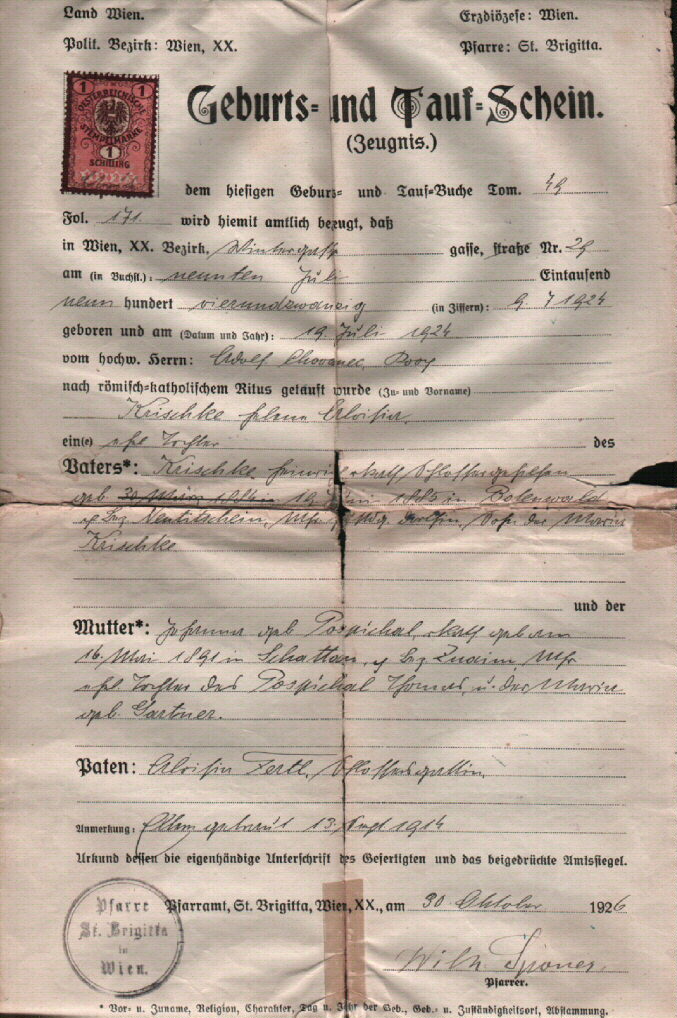 Land Wien.
Erzdiözese: Wien.
Polit. Bezirk: Wien, XX.
Pfarre: St. Brigitta.
1 1
OESTERREICHISCHE
STEMPELMARKE
1
SCHILLING
Geburts- und Tauf-Schein.
(Zeugnis.)
dem hiesigen Geburs- und Tauf-Buche Tom. 49
Fol. 171 wird hiemit amtlich bezeugt, daß
in Wien, XX. Bezirk, Wintergasse gasse, straße Nr. 29
am (in Buchst.): neunten Juli Eintausend
neun hundert vierundzwanzig (in Ziffern): 9 7 1924
geboren und am (Datum und Jahr): 19 Juli 1924
vom hochw. Herrn: Adolf Chovanec, Koop
nach römisch-katholischem Ritus getauft wurde (Zu- und Vorname)
Krischke Helene Aloisia
ein(e) ehel Tochter des
Vaters*: Krischke Heinrich, rkath Schlossergehilfen
geb. 30 März 1886 in 19 Juni 1888 in Bölenwald
Bez Neutitschein, Mähr, Sohn der Maria
Krischke
und der
Mutter*: Johanna geb Pospichal, rkath geb am
16. Mai 1891 in Schattau, Bez Znaim, Mähr
ehel. Tochter des Pospichal Thomas, u. der Maria
geb. Gartner.
Paten: Aloisia Fertl, Schlossersgattin
Anmerkung: Eltern getraut 13. Sept 1914
Urkund dessen die eigenhändige Unterschrift des Gefertigten und das beigedrückte Amtssiegel.
Pfarre
St. Brigitta
in
Wien.
Pfarramt, St. Brigitta, Wien, XX., am 30 Oktober 1926
Wilh.
Pfarrer.
* Vor- u. Zuname, Religion, Charakter, Tag u. Jahr der Geb., Geb.- u. Zuständigkeitsort, Abstammung.